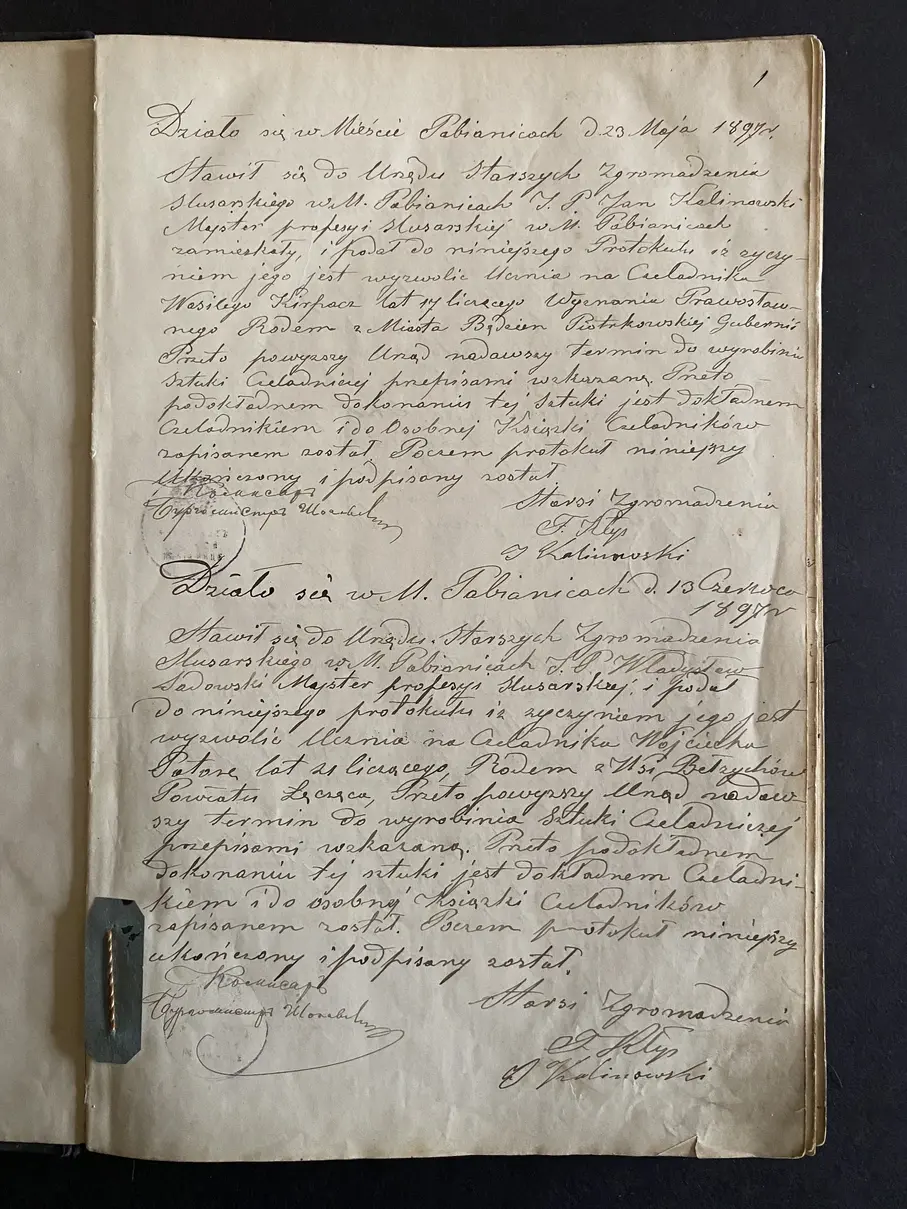 1
Działo się w Mieście Pabianicach d. 23 Maja 1897 r.
Stawił się do Urzędu Starszych Zgromadzenia
Slusarskiego w M. Pabianicach J. P. Jan Kalinowski
Majster profesyi Slusarskiej w M. Pabianicach
zamieszkały, i podał do niniejszego Protokułu iż zyczy-
niem jego jest wyzwolic Ucznia na Czeladnika
Wasilego Kirpacz lat 17 liczącego Wyznania Prawosław-
nego Rodem z Miasta Będzien Piotrkowskiej Gubernii
Przeto powyzszy Urząd nadawszy termin do wyrobiniu
Sztuki Czeladniciej przepisami wzkazaną. Preto
podokładnem dokonaniu tej Sztuki jest dokładnem
Czeladnikiem i do Osobnej Ksiązki Czeladników
zapisanem został, Poczem protokuł niniejszy
Ukończony i podpisany został.
Комисаръ
Бургомистръ
Starsi Zgromadzenia
F. Kłys
J Kalinowski
Działo się w M. Pabianicach d. 13 Czerwca
1897 r
Stawił się do Urzędu Starszych Zgromadzenia
Slusarskiego w M. Pabianicach J. P. Władysław
Sadowski Majster profesyi Slusarskiej, i podał
do niniejszego protokułu iz zyczyniem jego jest
wyzwolic Ucznia na Czeladnika Wojciecha
lat 21 liczącego, Rodem z Wsi Betzychów
Powiatu Łęczęca, Przeto powyzszy Urząd nadaw-
szy termin do wyrobinia Sztuki Czeladniczej
przepisami wzkazaną. Preto podokładnem
dokonaniu tej sztuki jest dokładnem Czeladni-
kiem i do osobnej Ksiązki Czeladników
zapisanem został. Poczem protokuł niniejszy
ukończony i podpisany został.
Комисаръ
Бургомистръ
Starsi Zgromadzenia
F. Kłys
J Kalinowski